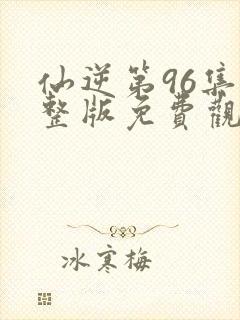 仙逆第96集
整版免費觀
冰寒梅